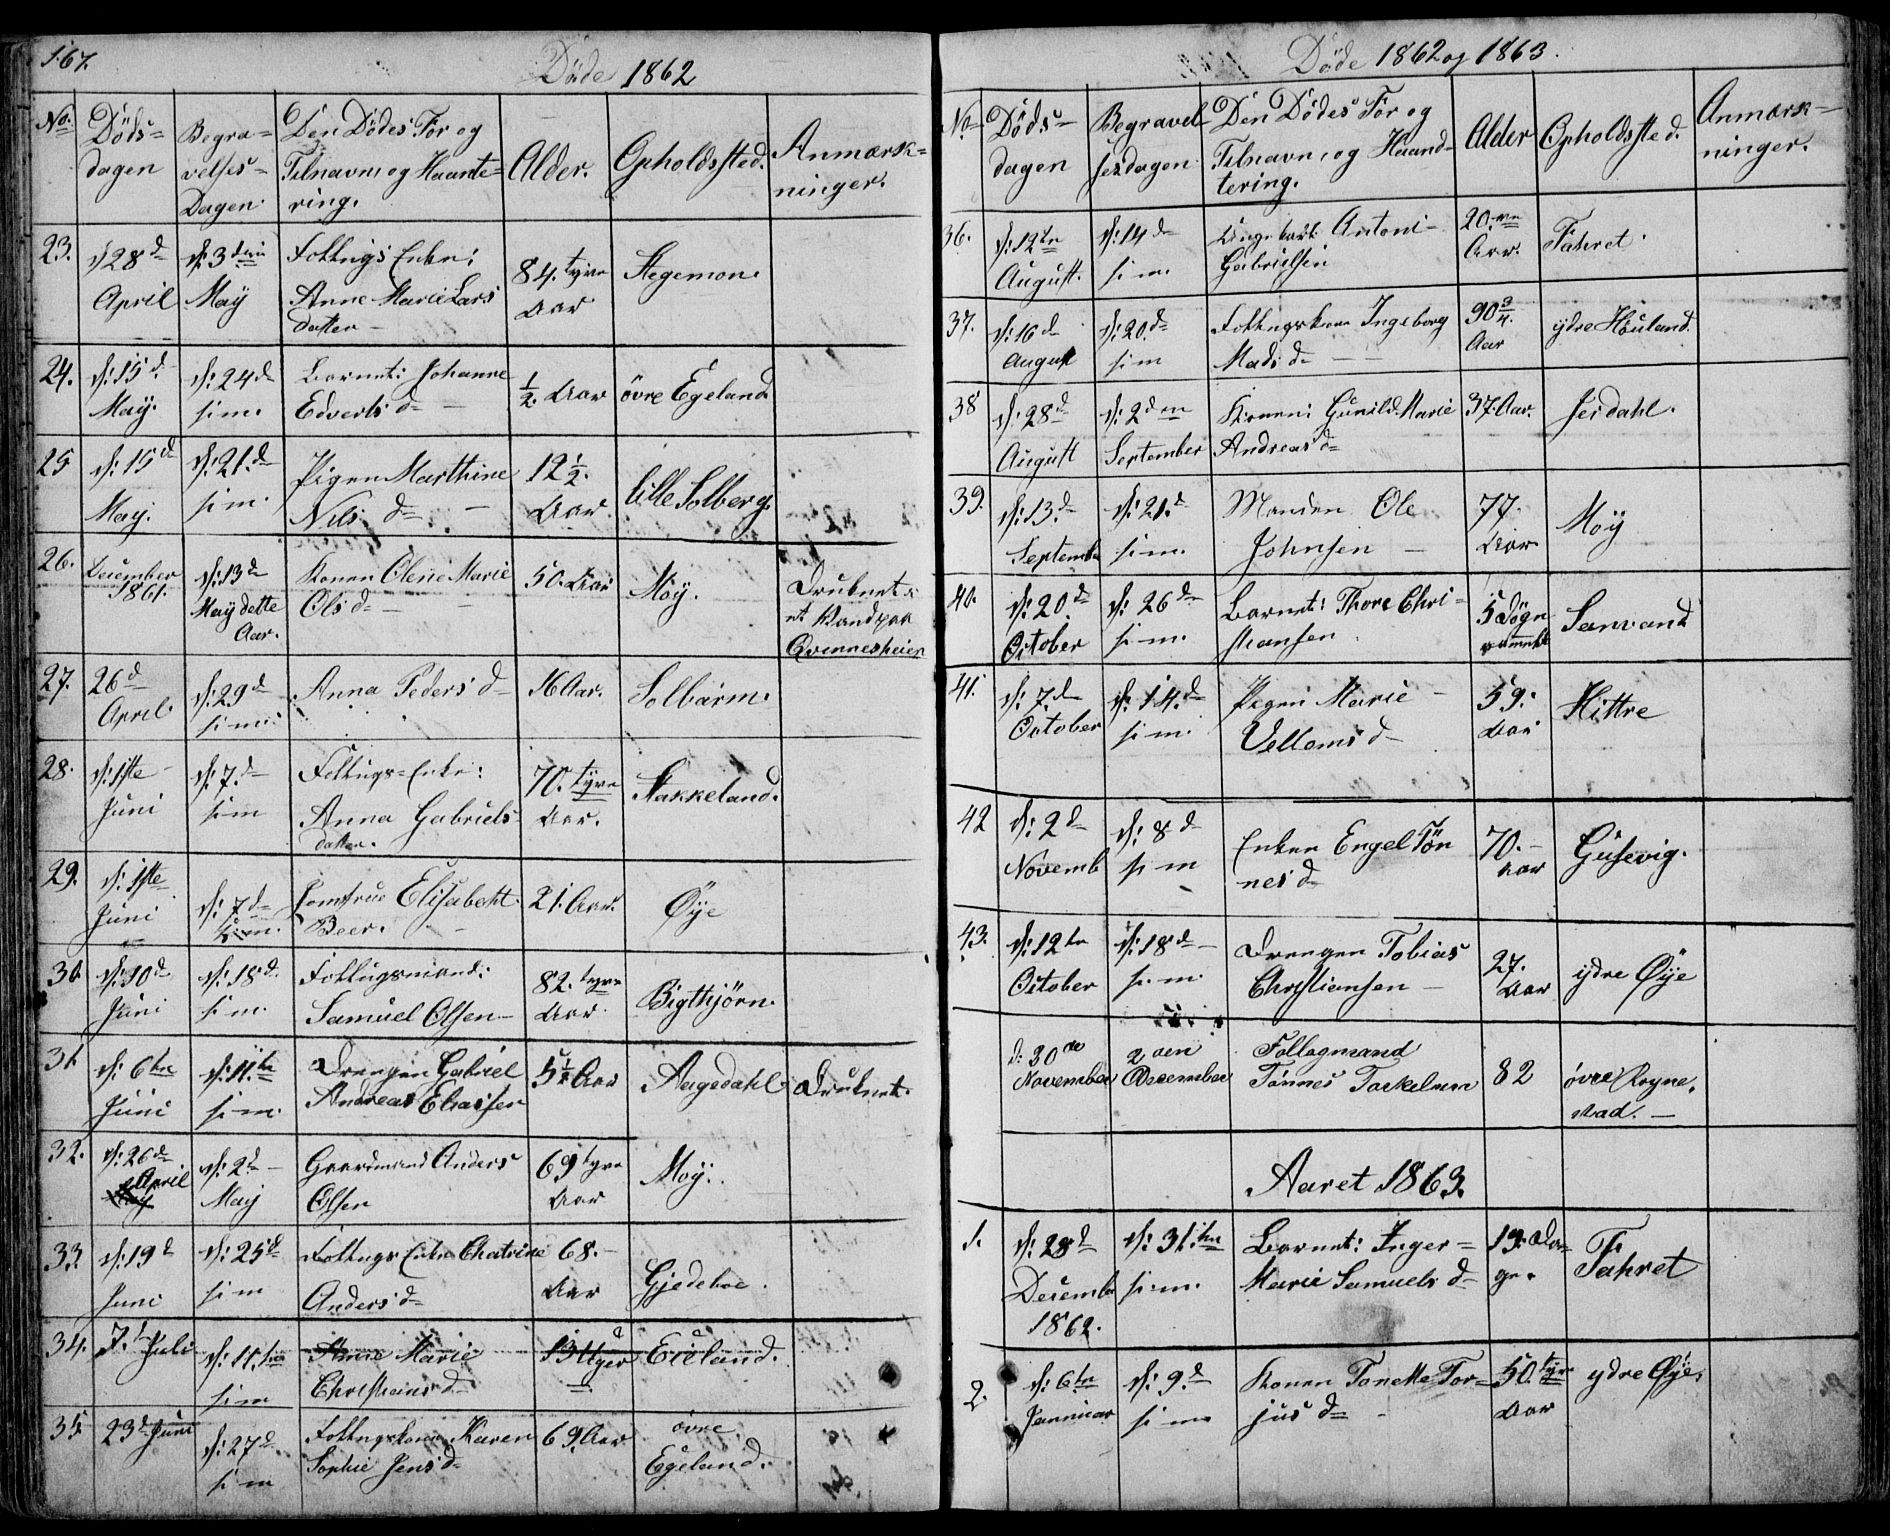 167.
Döde 1862
No.
Döds=
dagen
Begra=
velses=
Dagen.
Den Dödes For og
Tilnavn, og Haante=
ring.
Alder.
Opholdssted.
Anmærk=
ninger.
23.
d. 28d
April
d: 3die
May
Follugs Enke:
Anne Marie Lars
datter
84. tyve
Aar
Stegemon.
24.
d: 15d
May.
d: 24d
s: m.
Barnet: Johanne
Edverts d
1/2. Aar
övre Egeland
25
d: 15d
May.
d: 21.d
s: m.
Pigen Marthine
Nils d
12 1/2.
Aar
lille Solberg.
26.
December
1861.
d: 13d
May dette
Aar.
Konen Olene Marie
Ols d
50. Aar
Moÿ.
Druknet
et Vand paa
Qvinnesheien
27.
26d
April.
d: 29d
s: m.
Anna Peders d
16 Aar.
Solbarm.
28.
d: 1ste
Juni
d: 7.d
s: m
Follugs=Enke:
Anna Gabriels
datter.
70. tyve
Aar.
Stakkeland.
29.
d: 1ste
Juni
d: 7d
s: m.
Jomfrue Elisabeht
Beer.
21. Aar.
Øÿe
30.
d: 10d
Juni
d: 18d
s: m.
Follugsmand:
Samuel Olsen
82. tyve
Aar.
Bigthjörn.
31.
d: 6te
Juni
d: 11.te
s: m.
Drengen Gabriel
Andreas Eliassen
5 1/2 Aar
Aagedahl
Druknet.
32.
d: 26d
April
May
d: 2d
May
Gaardmand Anders
Olsen
69 tyve
Aar
Moÿ.
33.
d: 19d
Juni
d: 25d
s: m
Follugs Enke Chatrine
Anders d
68.
Aar
Gjedeboe.
34.
7.d Juli
d: 11.te
s: m
Anne Marie
Christians d
13 Uger
Eieland.
35.
23d Juni
d: 27d
s: m
Follugskone Karen
Sophie Jens d
69. Aar
övre
Egeland.
Döde 1862 og 1863.
No
Döds=
dagen
Begravel
sesdagen
Den Dödes For og
Tilnavn, og Haand=
tering.
Alder
Opholdssted.
Anmærk=
ninger.
36.
d: 12te
August.
d: 14d
s: m.
Ungekarl Antoni
Gabrielsen
20. tyve
Aar.
Fahret.
37.
d: 16d
August
d: 20.d
s: m
Follugskone Ingeborg
Mads d
90 3/4.
Aar
ydre Houland.
38
d: 28d
August
d: 2den
September
Konen: Gunild Marie
Andreas d
37. Aar.
Jerdahl.
39.
d: 13.d
Septembr
d: 21.d
s: m.
Manden Ole
Johnsen
77.
Aar
Moÿ
40.
d: 20d
October
d: 26d
s: m.
Barnet: Thore Chri=
stiansen
5 Dögn
Servand
41.
d: 7.d
October
d: 14.d
s: m.
Pigen Marie
Vellems d
59.
Aar
Hittre
42
d: 2d
Novemb
d: 8d
s: m
Enken Engel Tön
nes d
70.
Aar
Gusevig.
43.
d: 12te
October
d: 18d
s: m.
Drengen Tobias
Christiansen
27.
Aar
ydre Øÿe
d: 30de
November
2den
December
Follogmand
Tønnes Torkelsen
82
øvre Rogne,
stad.
Aaret 1863.
1.
d: 28d
Decembr
1862.
d: 31.te
s: m.
Barnet: Inger=
Marie Samuels d
13. Da=
ge.
Fahret
2.
d: 6te
Januar
d: 9.d
s: m
Konen Tonette Tor=
jus d
50. tyve
Aar
ydre Øÿe.